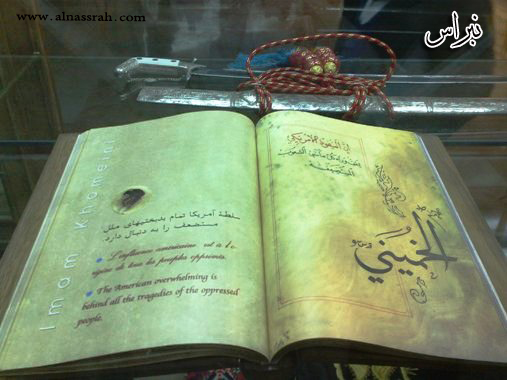 www.alnassrah.com
نبراس
Imam Khomeini
سلطهٔ آمریکا تمام بدبختیهای ملل
مستضعف را به دنبال دارد
L'influence américaine est à l'o-
rigine de tous les peuples opprimés.
The American overwhelming is
behind all the tragedies of the oppressed
people.
الشعوب
الخميني